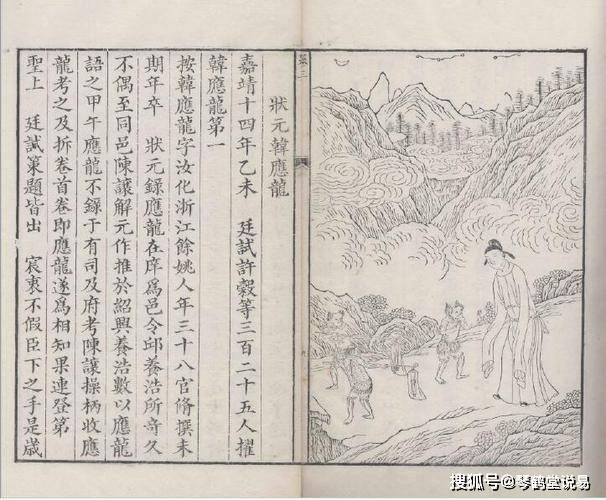 狀元韓應龍
嘉靖十四年乙未 廷試許穀等三百二十五人擢
韓應龍第一
按韓應龍字汝化浙江餘姚人年三十八官脩撰未
期年卒 狀元錄應龍在庠爲邑令邱養浩所竒久
不偶至同邑陳讓解元作推於紹興養浩數以應龍
語之甲午應龍不錄于有司及府考陳讓操柄收應
龍考之及拆卷首卷即應龍遂爲相知果連登第
聖上 廷試策題皆出 宸衷不假臣下之手是歲
搜狐号@琴鹤堂说易